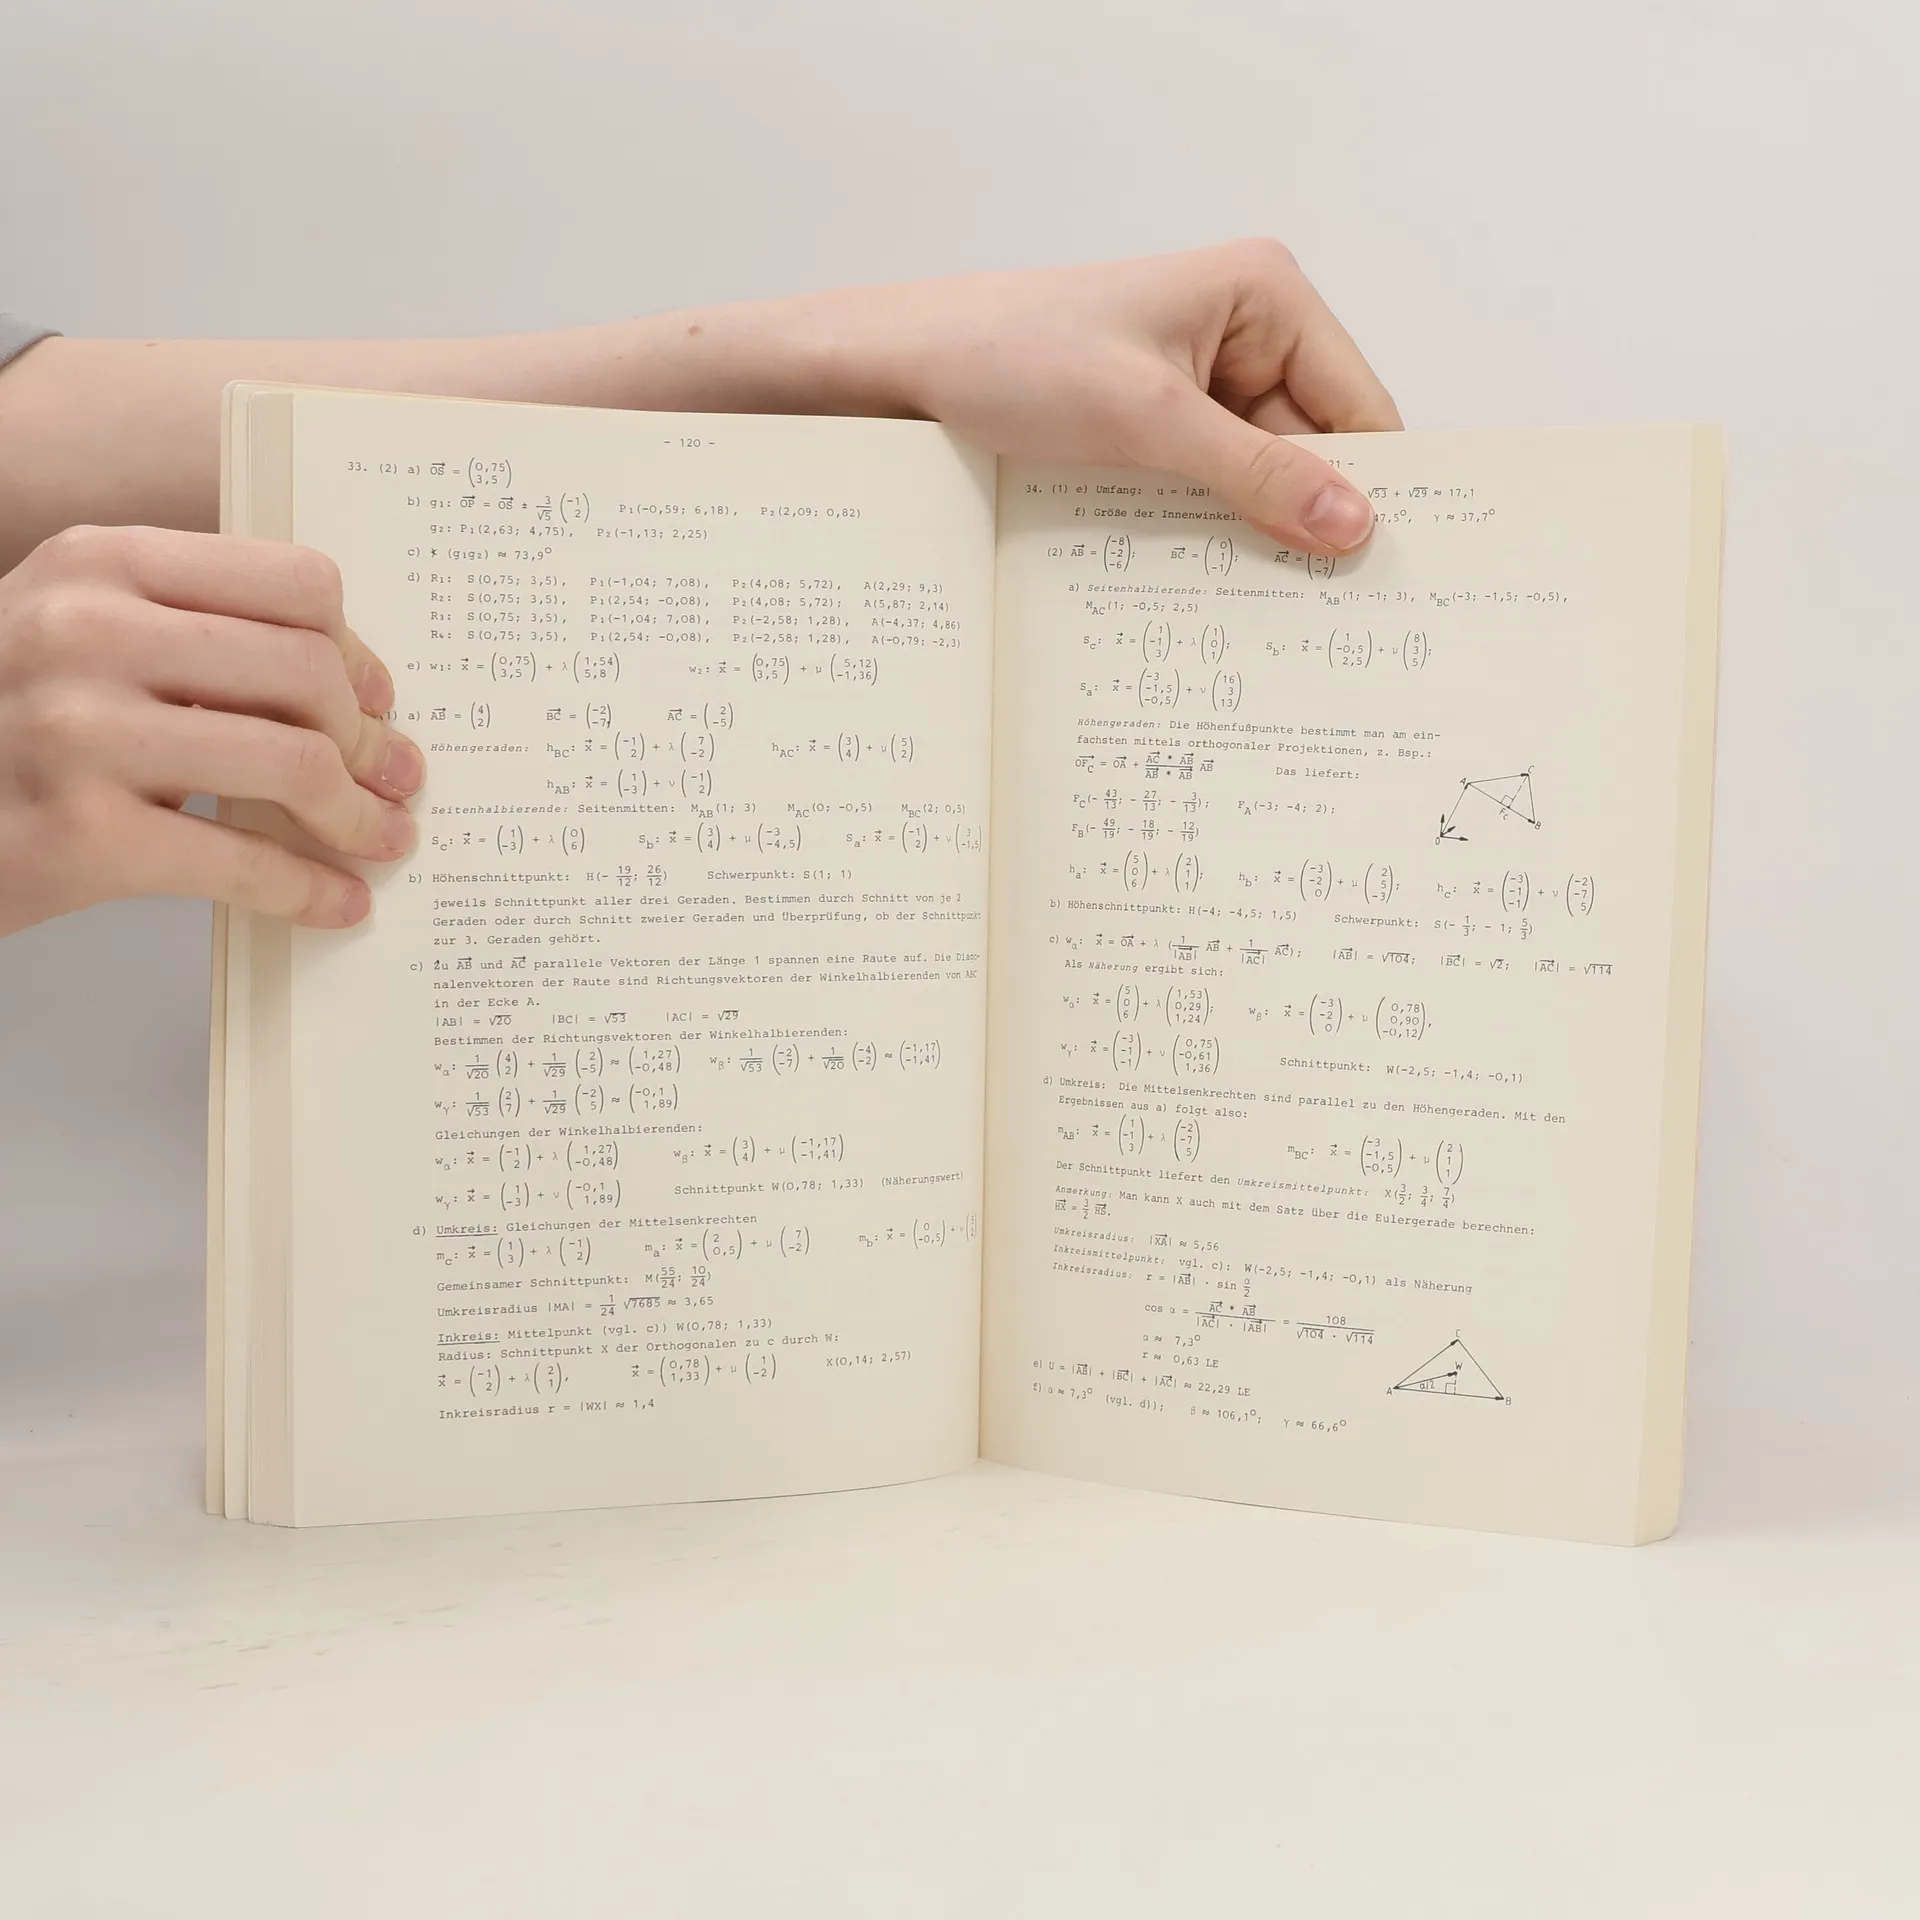 - 120 -
33. (2) a) OS⃗ = (0,75 / 3,5)
b) g₁: OP⃗ = OS⃗ ± 3/√5 (-1 / 2) P₁(-0,59; 6,18), P₂(2,09; 0,82)
g₂: P₁(2,63; 4,75), P₂(-1,13; 2,25)
c) ∢ (g₁g₂) ≈ 73,9°
d) R₁: S(0,75; 3,5), P₁(-1,04; 7,08), P₂(4,08; 5,72), A(2,29; 9,3)
R₂: S(0,75; 3,5), P₁(2,54; -0,08), P₂(4,08; 5,72); A(5,87; 2,14)
R₃: S(0,75; 3,5), P₁(-1,04; 7,08), P₂(-2,58; 1,28), A(-4,37; 4,86)
R₄: S(0,75; 3,5), P₁(2,54; -0,08), P₂(-2,58; 1,28), A(-0,79; -2,3)
e) w₁: x⃗ = (0,75 / 3,5) + λ (1,54 / 5,8) w₂: x⃗ = (0,75 / 3,5) + μ (5,12 / -1,36)
1) a) AB⃗ = (4 / 2) BC⃗ = (-2 / -7) AC⃗ = (2 / -5)
Höhengeraden: h_BC: x⃗ = (-1 / 2) + λ (7 / -2) h_AC: x⃗ = (3 / 4) + μ (5 / 2)
h_AB: x⃗ = (1 / -3) + ν (-1 / 2)
Seitenhalbierende: Seitenmitten: M_AB(1; 3) M_AC(0; -0,5) M_BC(2; 0,5)
S_c: x⃗ = (1 / -3) + λ (0 / 6) S_b: x⃗ = (3 / 4) + μ (-3 / -4,5) S_a: x⃗ = (-1 / 2) + ν (3 / -1,5)
b) Höhenschnittpunkt: H(- 19/12; 26/12) Schwerpunkt: S(1; 1)
jeweils Schnittpunkt aller drei Geraden. Bestimmen durch Schnitt von je 2
Geraden oder durch Schnitt zweier Geraden und Überprüfung, ob der Schnittpunkt
zur 3. Geraden gehört.
c) Zu AB⃗ und AC⃗ parallele Vektoren der Länge 1 spannen eine Raute auf. Die Diago-
nalenvektoren der Raute sind Richtungsvektoren der Winkelhalbierenden von ABC
in der Ecke A.
|AB| = √20 |BC| = √53 |AC| = √29
Bestimmen der Richtungsvektoren der Winkelhalbierenden:
w_α: 1/√20 (4 / 2) + 1/√29 (2 / -5) ≈ (1,27 / -0,48) w_β: 1/√53 (-2 / -7) + 1/√20 (-4 / -2) ≈ (-1,17 / -1,41)
w_γ: 1/√53 (2 / 7) + 1/√29 (-2 / 5) ≈ (-0,1 / 1,89)
Gleichungen der Winkelhalbierenden:
w_α: x⃗ = (-1 / 2) + λ (1,27 / -0,48) w_β: x⃗ = (3 / 4) + μ (-1,17 / -1,41)
w_γ: x⃗ = (1 / -3) + ν (-0,1 / 1,89) Schnittpunkt W(0,78; 1,33) (Näherungswert)
d) Umkreis: Gleichungen der Mittelsenkrechten
m_c: x⃗ = (1 / 3) + λ (-1 / 2) m_a: x⃗ = (2 / 0,5) + μ (7 / -2) m_b: x⃗ = (0 / -0,5) + ν (5 / 2)
Gemeinsamer Schnittpunkt: M(55/24; 10/24)
Umkreisradius |MA| = 1/24 √7685 ≈ 3,65
Inkreis: Mittelpunkt (vgl. c)) W(0,78; 1,33)
Radius: Schnittpunkt X der Orthogonalen zu c durch W:
x⃗ = (-1 / 2) + λ (2 / 1), x⃗ = (0,78 / 1,33) + μ (1 / -2) X(0,14; 2,57)
Inkreisradius r = |WX| ≈ 1,4
21 -
34. (1) e) Umfang: u = |AB| √53 + √29 ≈ 17,1
f) Größe der Innenwinkel: 47,5°, γ ≈ 37,7°
(2) AB⃗ = (-8 / -2 / -6); BC⃗ = (0 / 1 / -1); AC⃗ = ( -1 / -7)
a) Seitenhalbierende: Seitenmitten: M_AB(1; -1; 3), M_BC(-3; -1,5; -0,5),
M_AC(1; -0,5; 2,5)
S_c: x⃗ = (1 / -1 / 3) + λ (1 / 0 / 1); S_b: x⃗ = (1 / -0,5 / 2,5) + μ (8 / 3 / 5);
S_a: x⃗ = (-3 / -1,5 / -0,5) + ν (16 / 3 / 13)
Höhengeraden: Die Höhenfußpunkte bestimmt man am ein-
fachsten mittels orthogonaler Projektionen, z. Bsp.:
OF_C⃗ = OA⃗ + (AC⃗ * AB⃗)/(AB⃗ * AB⃗) AB⃗ Das liefert:
F_C(- 43/13; - 27/13; - 3/13); F_A(-3; -4; 2);
F_B(- 49/19; - 18/19; - 12/19)
A C F_C B 0
h_a: x⃗ = (5 / 0 / 6) + λ (2 / 1 / 1); h_b: x⃗ = (-3 / -2 / 0) + μ (2 / 5 / -3); h_c: x⃗ = (-3 / -1 / -1) + ν (-2 / -7 / 5)
b) Höhenschnittpunkt: H(-4; -4,5; 1,5) Schwerpunkt: S(- 1/3; - 1; 5/3)
c) w_α: x⃗ = OA⃗ + λ (1/|AB⃗| AB⃗ + 1/|AC⃗| AC⃗); |AB⃗| = √104; |BC⃗| = √2; |AC⃗| = √114
Als Näherung ergibt sich:
w_α: x⃗ = (5 / 0 / 6) + λ (1,53 / 0,29 / 1,24); w_β: x⃗ = (-3 / -2 / 0) + μ (0,78 / 0,90 / -0,12),
w_γ: x⃗ = (-3 / -1 / -1) + ν (0,75 / -0,61 / 1,36) Schnittpunkt: W(-2,5; -1,4; -0,1)
d) Umkreis: Die Mittelsenkrechten sind parallel zu den Höhengeraden. Mit den
Ergebnissen aus a) folgt also:
m_AB: x⃗ = (1 / -1 / 3) + λ (-2 / -7 / 5) m_BC: x⃗ = (-3 / -1,5 / -0,5) + μ (2 / 1 / 1)
Der Schnittpunkt liefert den Umkreismittelpunkt: X(3/2; 3/4; 7/4)
Anmerkung: Man kann X auch mit dem Satz über die Eulergerade berechnen:
HX⃗ = 3/2 HS⃗.
Umkreisradius: |XA⃗| ≈ 5,56
Inkreismittelpunkt: vgl. c): W(-2,5; -1,4; -0,1) als Näherung
Inkreisradius: r = |AB⃗| · sin α/2
cos α = (AC⃗ * AB⃗)/(|AC⃗| · |AB⃗|) = 108/(√104 · √114)
α ≈ 7,3°
r ≈ 0,63 LE
C W A α/2 B
e) U = |AB⃗| + |BC⃗| + |AC⃗| ≈ 22,29 LE
f) α ≈ 7,3° (vgl. d)); β ≈ 106,1°; γ ≈ 66,6°